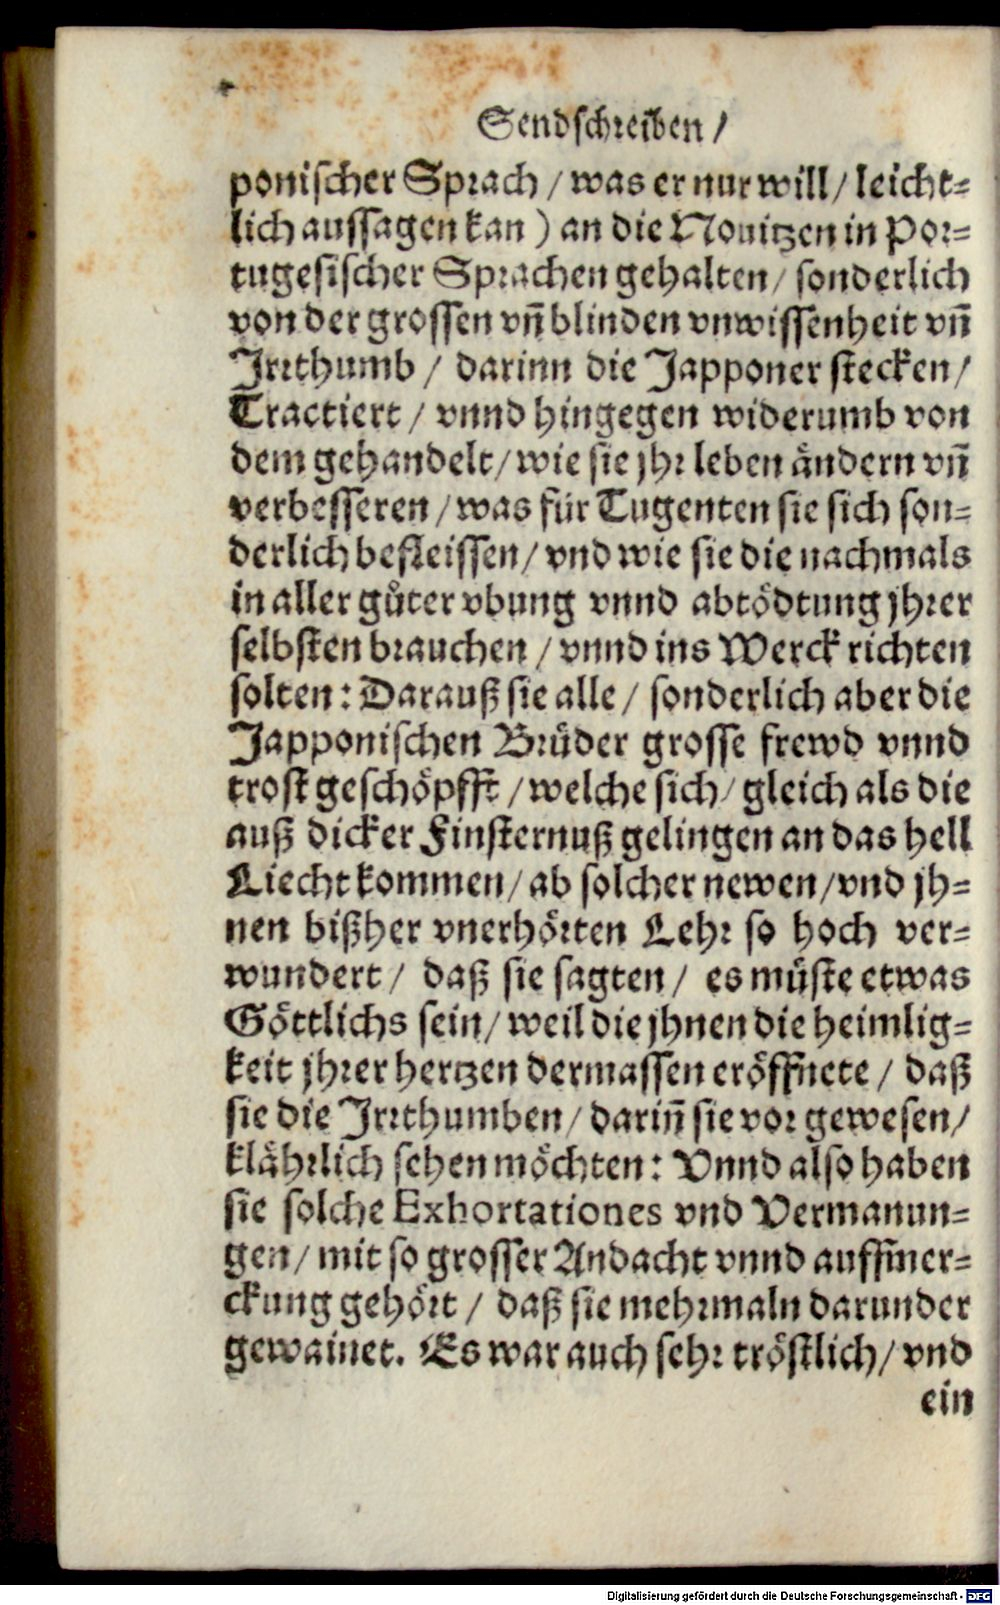 Sendschreiben /
ponischer Sprach / was er nur will / leicht=
lich aussagen kan ) an die Nouitzen in Por=
tugesischer Sprachen gehalten / sonderlich
von der grossen vñ blinden vnwissenheit vñ
Irrthumb / darinn die Japponer stecken /
Tractiert / vnnd hingegen widerumb von
dem gehandelt / wie sie jhr leben ändern vñ
verbesseren / was für Tugenten sie sich son=
derlich befleissen / vnd wie sie die nachmals
in aller gůter vbung vnnd abtödtung jhrer
selbsten brauchen / vnnd ins Werck richten
solten : Darauß sie alle / sonderlich aber die
Japponischen Brüder grosse frewd vnnd
trost geschöpfft / welche sich / gleich als die
auß dicker Finsternuß gelingen an das hell
Liecht kommen / ab solcher newen / vnd jh=
nen bißher vnerhörten Lehr so hoch ver=
wundert / daß sie sagten / es müste etwas
Göttlichs sein / weil die jhnen die heimlig=
keit jhrer hertzen dermassen eröffnete / daß
sie die Irrthumben / dariñ sie vor gewesen /
klährlich sehen möchten : Vnnd also haben
sie solche Exhortationes vnd Vermanun=
gen / mit so grosser Andacht vnnd auffmer=
ckung gehört / daß sie mehrmaln darunder
gewainet. Es war auch sehr tröstlich / vnd
ein
Digitalisierung gefördert durch die Deutsche Forschungsgemeinschaft - DFG